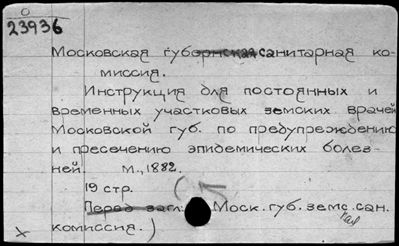 0
23936
Московская губернская санитарная ко-
миссия.
Инструкция для постоянных и
временных участковых земских врачей
Московской губ. по предупреждению
и пресечению эпидемических болез-
ней. М., 1882.
19 стр. (
Перед загл. Моск. губ. земс. сан.
кая
комиссия.)
x